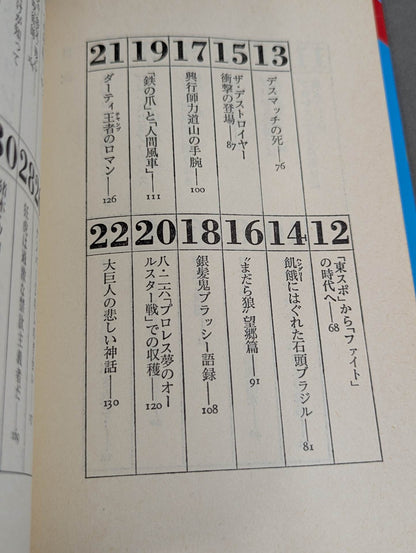 12
「東スポ」から「ファイト」
の時代へ—68
13
デスマッチの死—76
14
飢餓にはぐれた石頭ブラジル—81
ハングリー
15
ザ・デストロイヤー
衝撃の登場—87
16
〝まだら狼〟望郷篇—91
17
興行師力道山の手腕—100
18
銀髪鬼ブラッシー語録—108
19
「鉄の爪」と「人間風車」—111
20
八・二六「プロレス夢のオー
ルスター戦」での収穫—120
21
ダーティ王者のロマン—126
チャンプ
22
大巨人の悲しい神話—130
28
30